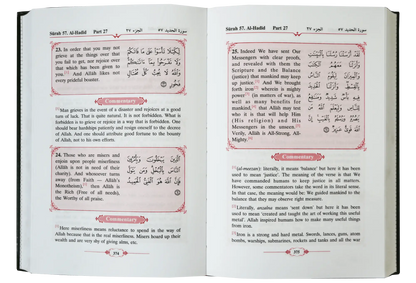 Sûrah 57. Al-Hadid Part 27 الجزء ٢٧ سورة الحديد ٥٧
23. In order that you may
not grieve at the things over that
you fail to get, nor rejoice over
that which has been given to
you. And Allah likes not
every prideful boaster.
لِكَيْلَا تَأْسَوْا عَلَىٰ مَا فَاتَكُمْ
وَلَا تَفْرَحُوا بِمَا آتَاكُمْ
وَاللَّهُ لَا يُحِبُّ كُلَّ مُخْتَالٍ
فَخُورٍ
Commentary
Man grieves in the event of a disaster and rejoices at a good
turn of luck. That is quite natural. It is not forbidden. What is
forbidden is to grieve or rejoice in a way that is forbidden. One
should bear hardships patiently and resign oneself to the decree
of Allah. And one should attribute good fortune to the bounty
of Allah, not to his own efforts.
24. Those who are misers and
enjoin upon people miserliness
(Allah is not in need of their
charity). And whosoever turns
away (from Faith — Allâh's
Monotheism), then Allah is
the Rich (Free of all needs),
the Worthy of all praise.
الَّذِينَ يَبْخَلُونَ وَيَأْمُرُونَ
النَّاسَ بِالْبُخْلِ وَمَن يَتَوَلَّ
فَإِنَّ اللَّهَ هُوَ الْغَنِيُّ الْحَمِيدُ
Commentary
Here miserliness means reluctance to spend in the way of
Allah because that is the real miserliness. Misers hoard up their
wealth and are very shy of giving alms, etc.
374
Sûrah 57. Al-Hadid Part 27 الجزء ٢٧ سورة الحديد ٥٧
25. Indeed We have sent Our
Messengers with clear proofs,
and revealed with them the
Scripture and the Balance
(justice) that mankind may keep
up justice. And We brought
forth iron wherein is mighty
power (in matters of war), as
well as many benefits for
mankind, that Allah may test
who it is that will help Him
(His religion) and His
Messengers in the unseen.
Verily, Allah is All-Strong,
All-Mighty.
Commentary
(al-meezan): literally, it means 'balance' but here it has been
used to mean 'justice'. The meaning of the verse is that We
have commanded humans to keep justice in all matters.
However, some commentators take the word in its literal sense.
In that case, the meaning would be: We guided mankind to the
balance that they may observe right measure.
Literally, anzalna means 'sent down' but here it has been
used to mean 'created and taught the art of working this useful
metal'. Allah inspired humans how to make many useful things
from iron.
Iron is a strong and hard metal. Swords, lances, guns, atom
bombs, warships, submarines, rockets and tanks and all the war
375